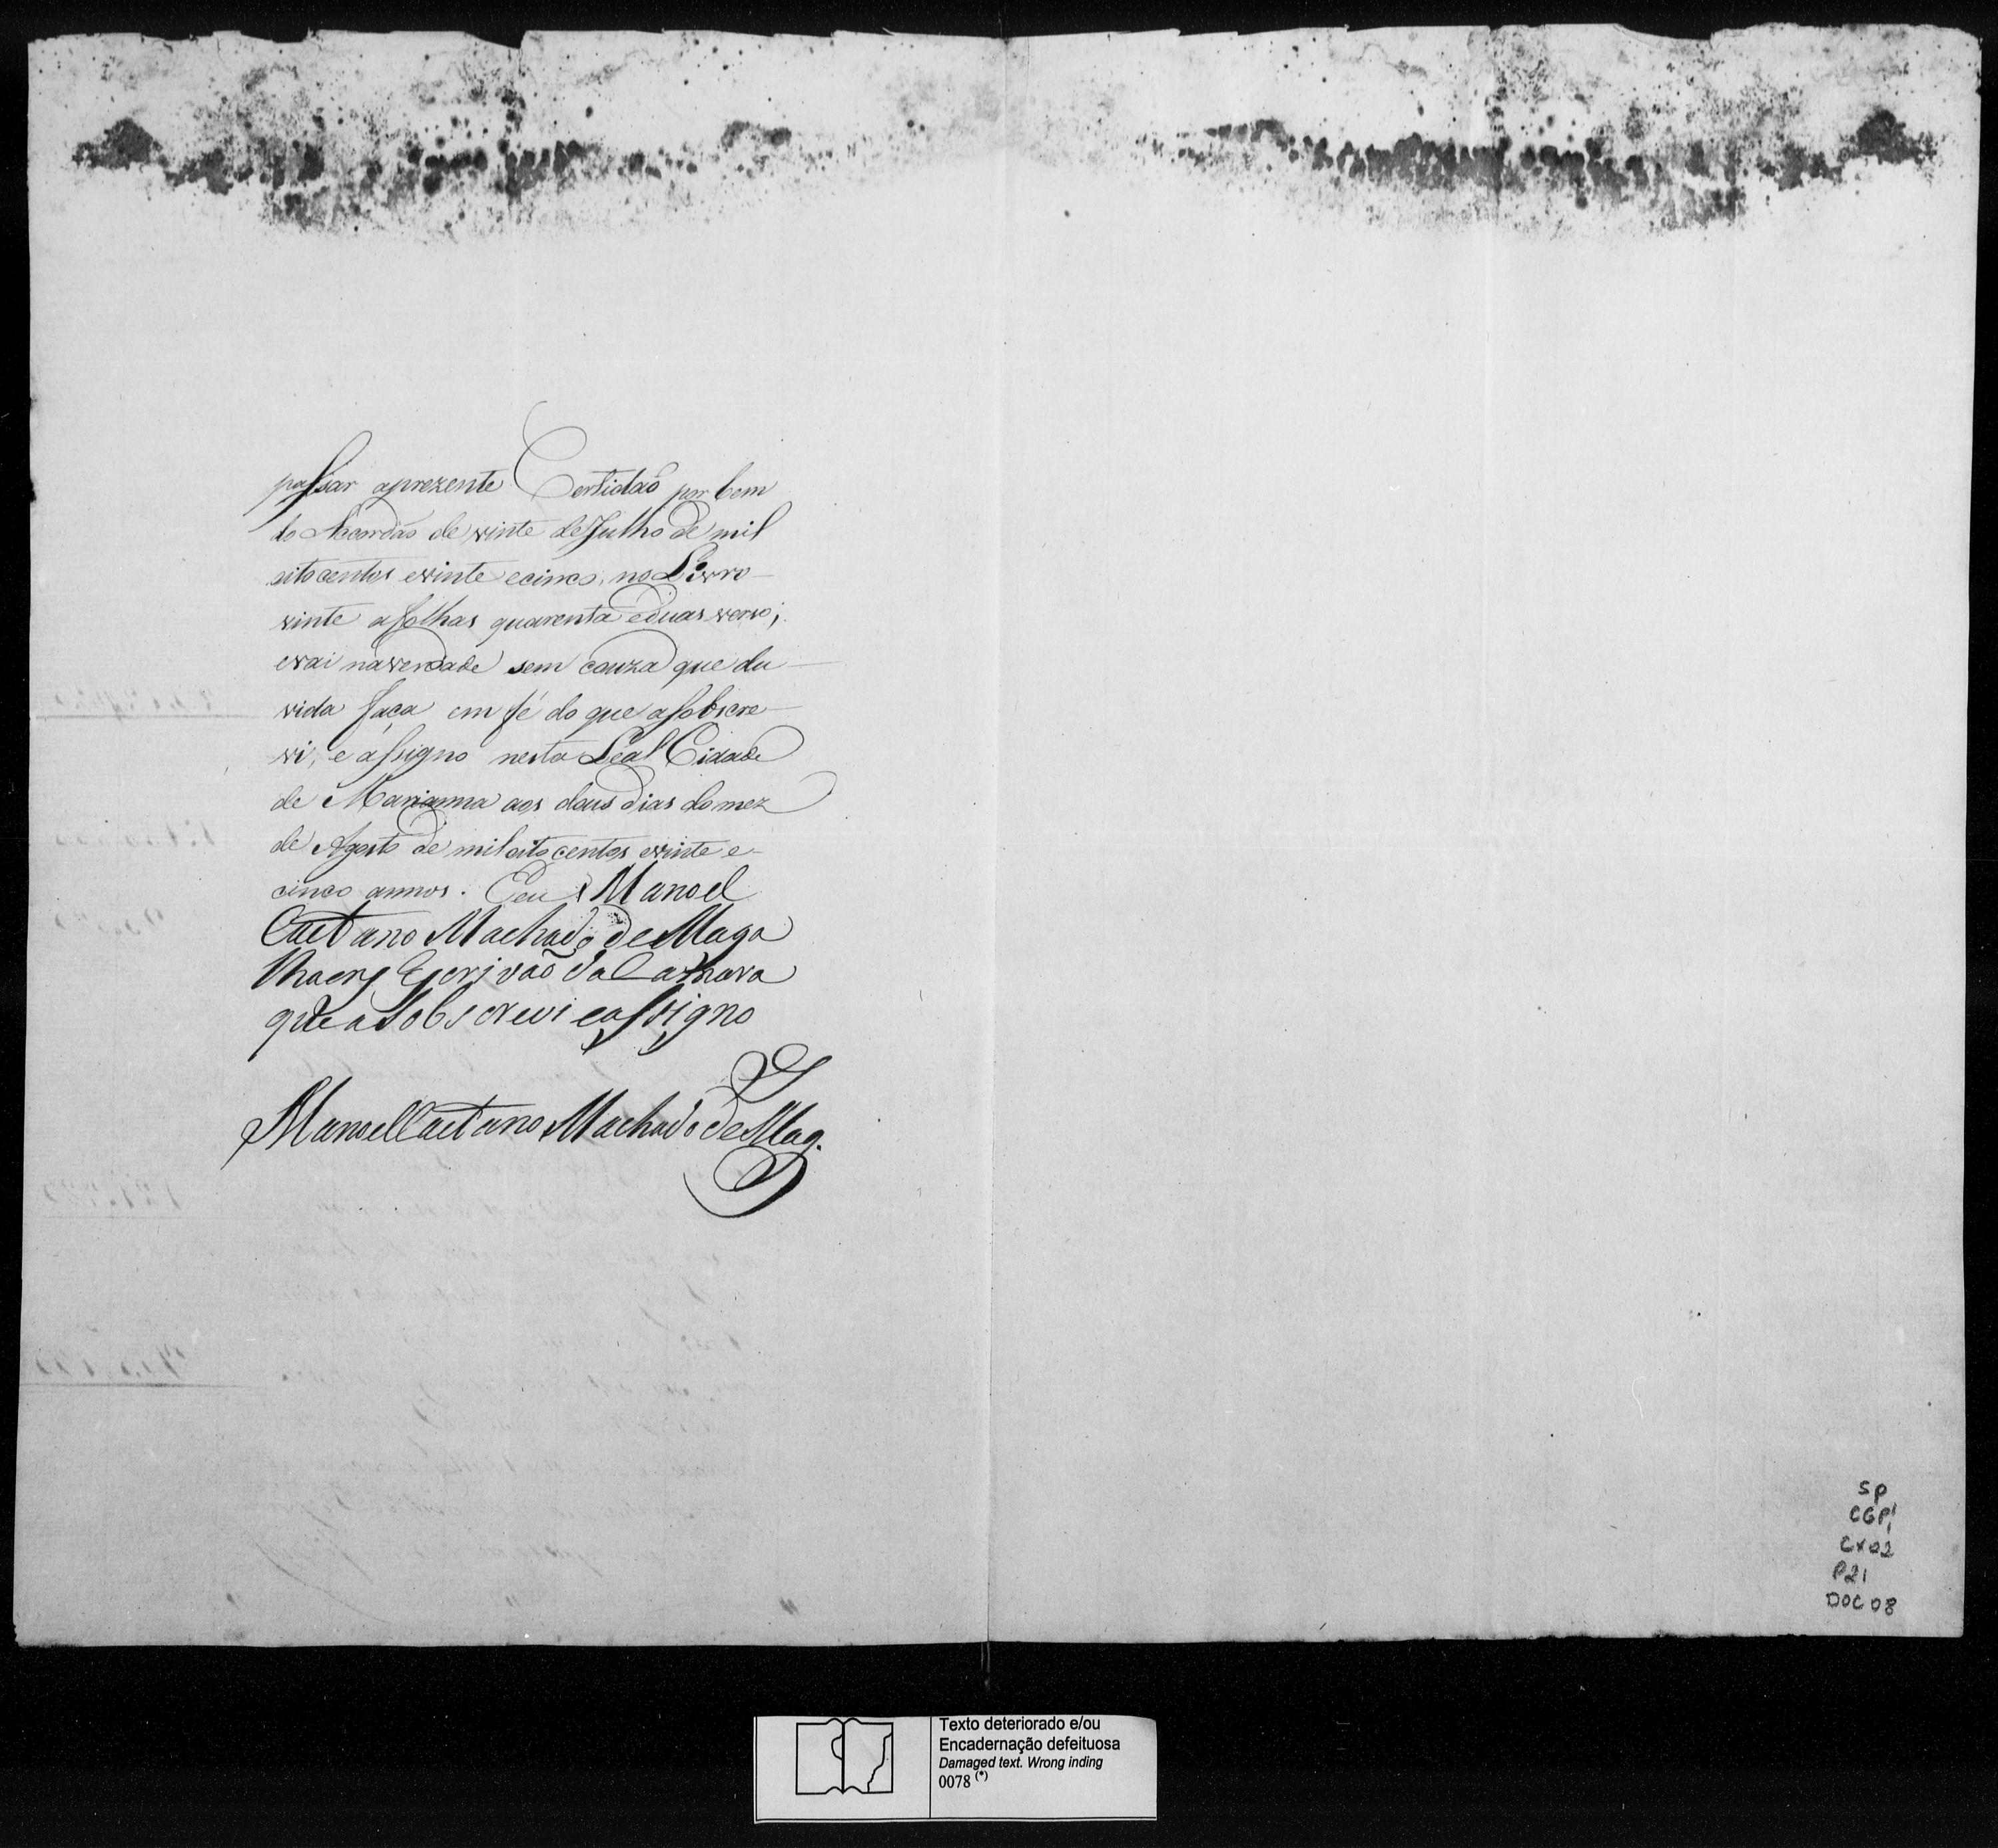 passar aprezente Certidaõ por bem
do Acordão de vinte de Julho de mil
oito centos evinte ecinco, no Livro
vinte afolhas quarenta eduas verso;
evai naverdade sem couza que du
vida faça em fé do que asobscre
vi, e assigno nesta Leal Cidade
de Marianna aos dous dias do mez
de Agosto de mil oito centos evinte e
cinco annos. Eu Manoel
Caetano Machado de Maga
lhaens Escrivão da Camara
que a sobscrevi eassigno
Manoel Caetano Machado de Mag.
SP
CGP1
CX02
P21
DOC 08
Texto deteriorado e/ou
Encadernação defeituosa
Damaged text. Wrong inding
0078 (*)